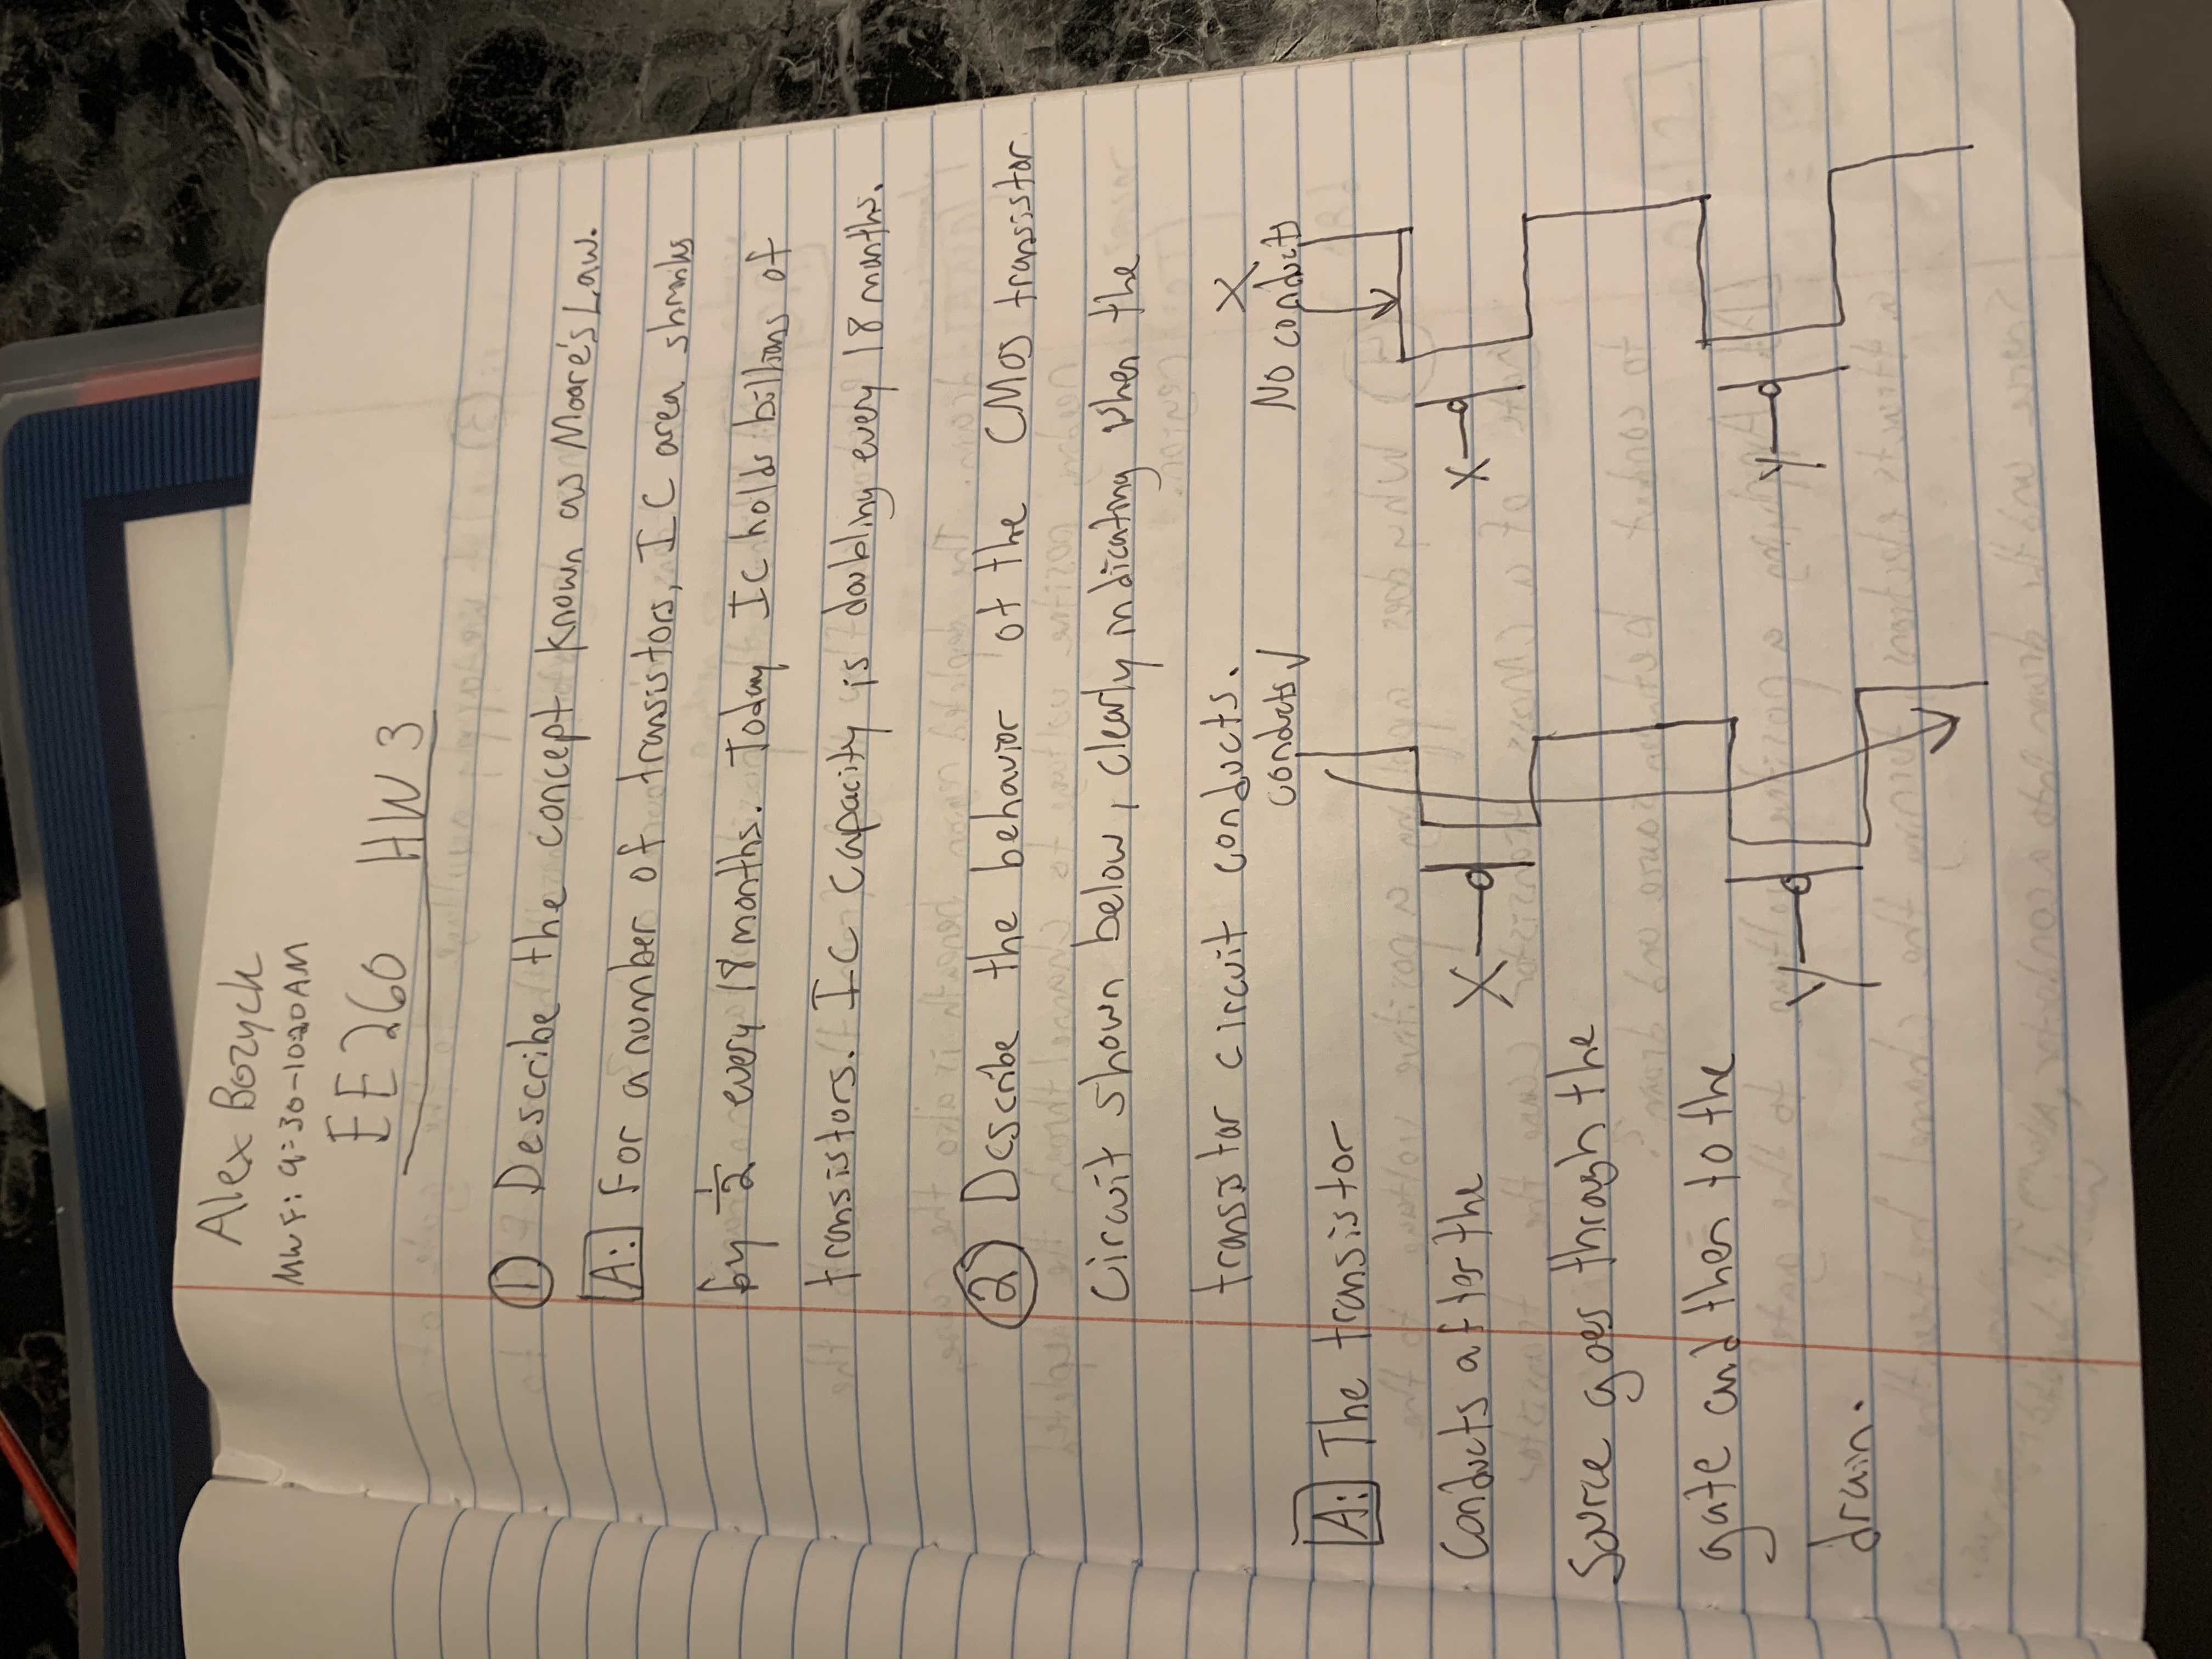 Alex Bozych
MWF: 9:30-1020AM
EE260 HW 3
① Describe the concept known as Moore's Law.
A: For a number of transistors, IC area shrinks
by 1/2 every 18 months. Today IC holds billions of
transistors. IC capacity is doubling every 18 months.
② Describe the behavior of the CMOS transistor
circuit shown below, clearly indicating when the
transistor circuit conducts.
X
conducts √
No conducts
A: The transistor
conducts after the
Source goes through the
gate and then to the
drain.
X
X
Y
Y